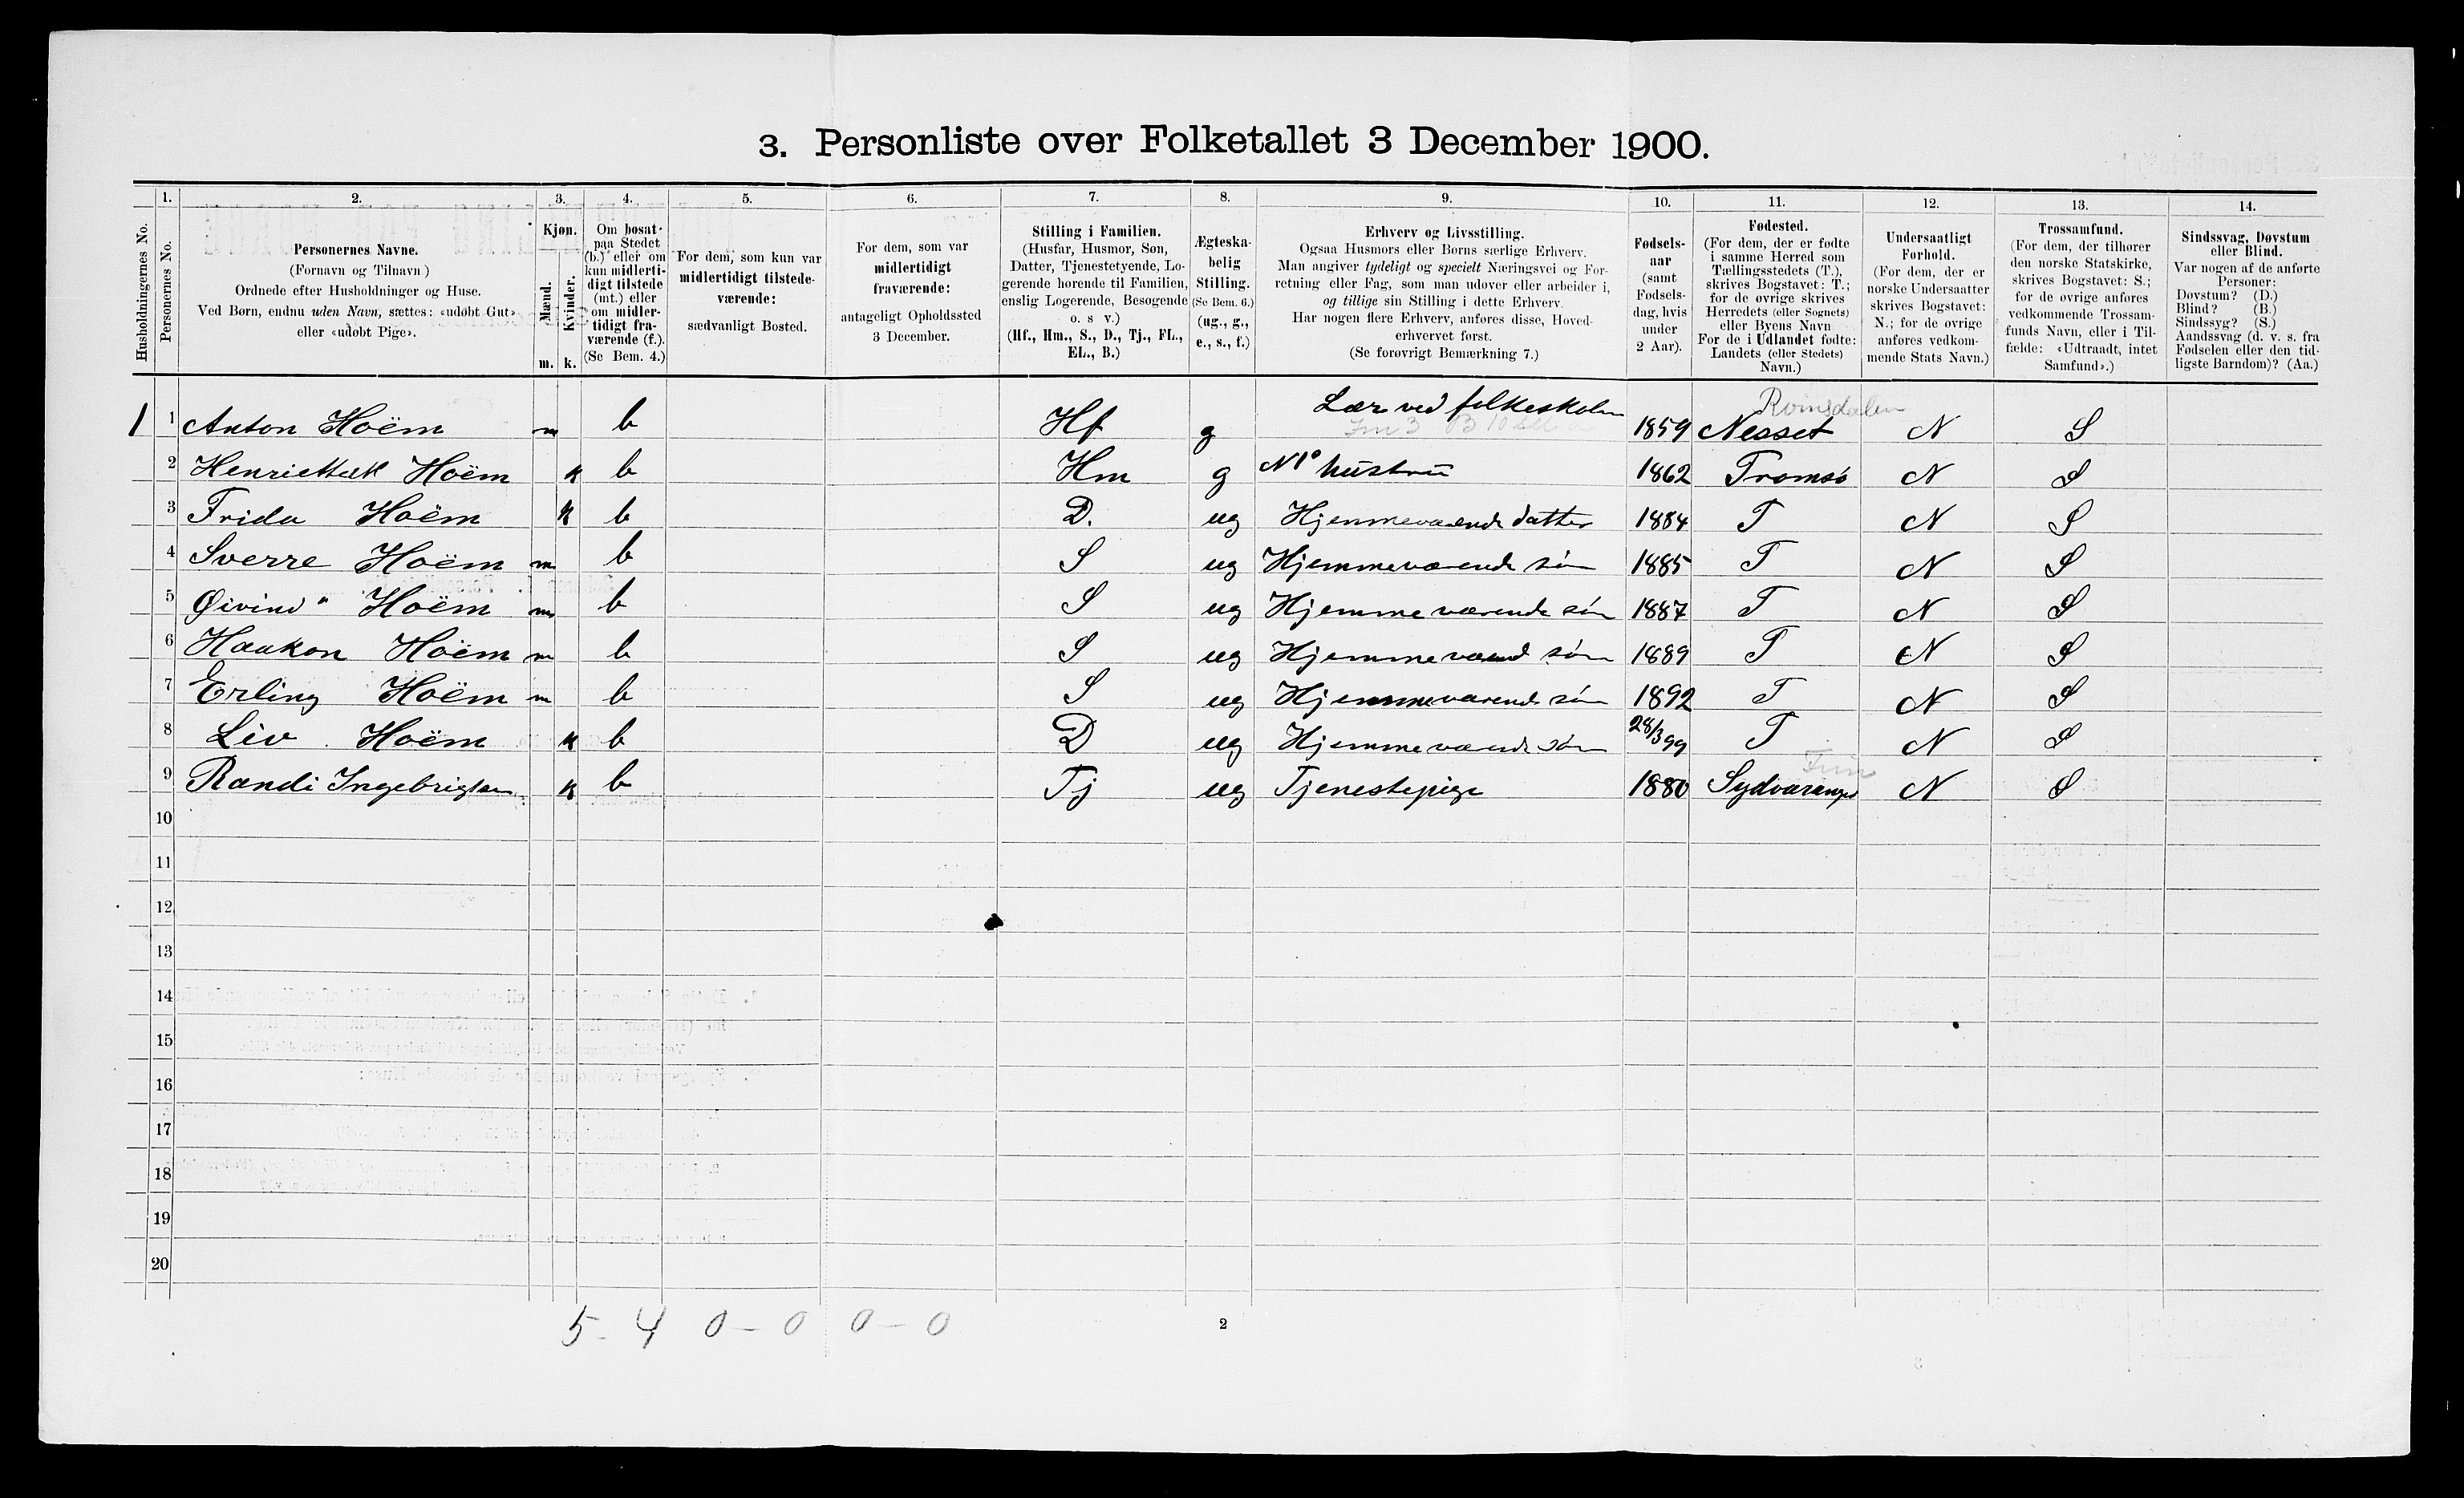 3. Personliste over Folketallet 3 December 1900.
Husholdningernes No.
1. Personernes No.
2. Personernes Navne.
(Fornavn og Tilnavn)
Ordnede efter Husholdninger og Huse.
Ved Børn, endnu uden Navn, sættes: «udøbt Gut»
eller «udøbt Pige».
3. Kjøn.
Mænd. m.
Kvinder. k.
4. Om bosat
paa Stedet
(b.) eller om
kun midlerti-
digt tilstede
(mt.) eller
om midler-
tidigt fra-
værende (f.).
(Se Bem. 4.)
5. For dem, som kun var
midlertidigt tilstede-
værende:
sædvanligt Bosted.
6. For dem, som var
midlertidigt
fraværende:
antageligt Opholdssted
3 December.
7. Stilling i Familien.
(Husfar, Husmor, Søn,
Datter, Tjenestetyende, Lo-
gerende hørende til Familien,
enslig Logerende, Besøgende
o. s v.)
(Hf., Hm., S., D., Tj., FL.,
EL., B.)
8. Ægteska-
belig
Stilling.
(Se Bem. 6.)
(ug., g.,
e., s., f.)
9. Erhverv og Livsstilling.
Ogsaa Husmors eller Børns særlige Erhverv.
Man angiver tydeligt og specielt Næringsvei og For-
retning eller Fag, som man udøver eller arbeider i,
og tillige sin Stilling i dette Erhverv.
Har nogen flere Erhverv, anføres disse, Hoved-
erhvervet først.
(Se forøvrigt Bemærkning 7.)
10. Fødsels-
aar
(samt
Fødsels-
dag, hvis
under
2 Aar).
11. Fødested.
(For dem, der er fødte
i samme Herred som
Tællingsstedets (T.),
skrives Bogstavet: T.;
for de øvrige skrives
Herredets (eller Sognets)
eller Byens Navn
For de i Udlandet fødte:
Landets (eller Stedets)
Navn.)
12. Undersaatligt
Forhold.
(For dem, der er
norske Undersaatter
skrives Bogstavet:
N.; for de øvrige
anføres vedkom-
mende Stats Navn.)
13. Trossamfund.
(For dem, der tilhører
den norske Statskirke,
skrives Bogstavet: S.;
for de øvrige anføres
vedkommende Trossam-
funds Navn, eller i Til-
fælde: «Udtraadt, intet
Samfund».)
14. Sindssvag, Døvstum
eller Blind.
Var nogen af de anførte
Personer:
Døvstum? (D.)
Blind? (B.)
Sindssyg? (S.)
Aandssvag (d. v. s. fra
Fødselen eller den tid-
ligste Barndom)? (Aa.)
Romsdalen
1 1 Anton Hoëm m b Hf g Lær ved folkeskolen 1859 Nesset N S
2 Henriette Hoëm k b Hm g No 1 hustru 1862 Tromsø N S
3 Frida Hoëm k b D. ug Hjemmeværende datter 1884 T N S
4 Sverre Hoëm m b S ug Hjemmeværende søn 1885 T N S
5 Øivind Hoëm m b S ug Hjemmeværende søn 1887 T N S
6 Haakon Hoëm m b S ug Hjemmeværend søn 1889 T N S
7 Erling Hoëm m b S ug Hjemmeværende søn 1892 T N S
8 Liv Hoëm k b D ug Hjemmeværende søn 28/3 99 T N S
9 Randi Ingebrigtsen k b Tj ug Tjenestepige 1880 Sydvaranger N S
10
11
12
13
14
15
16
17
18
19
20
5 - 4 0 - 0 0 - 0
2